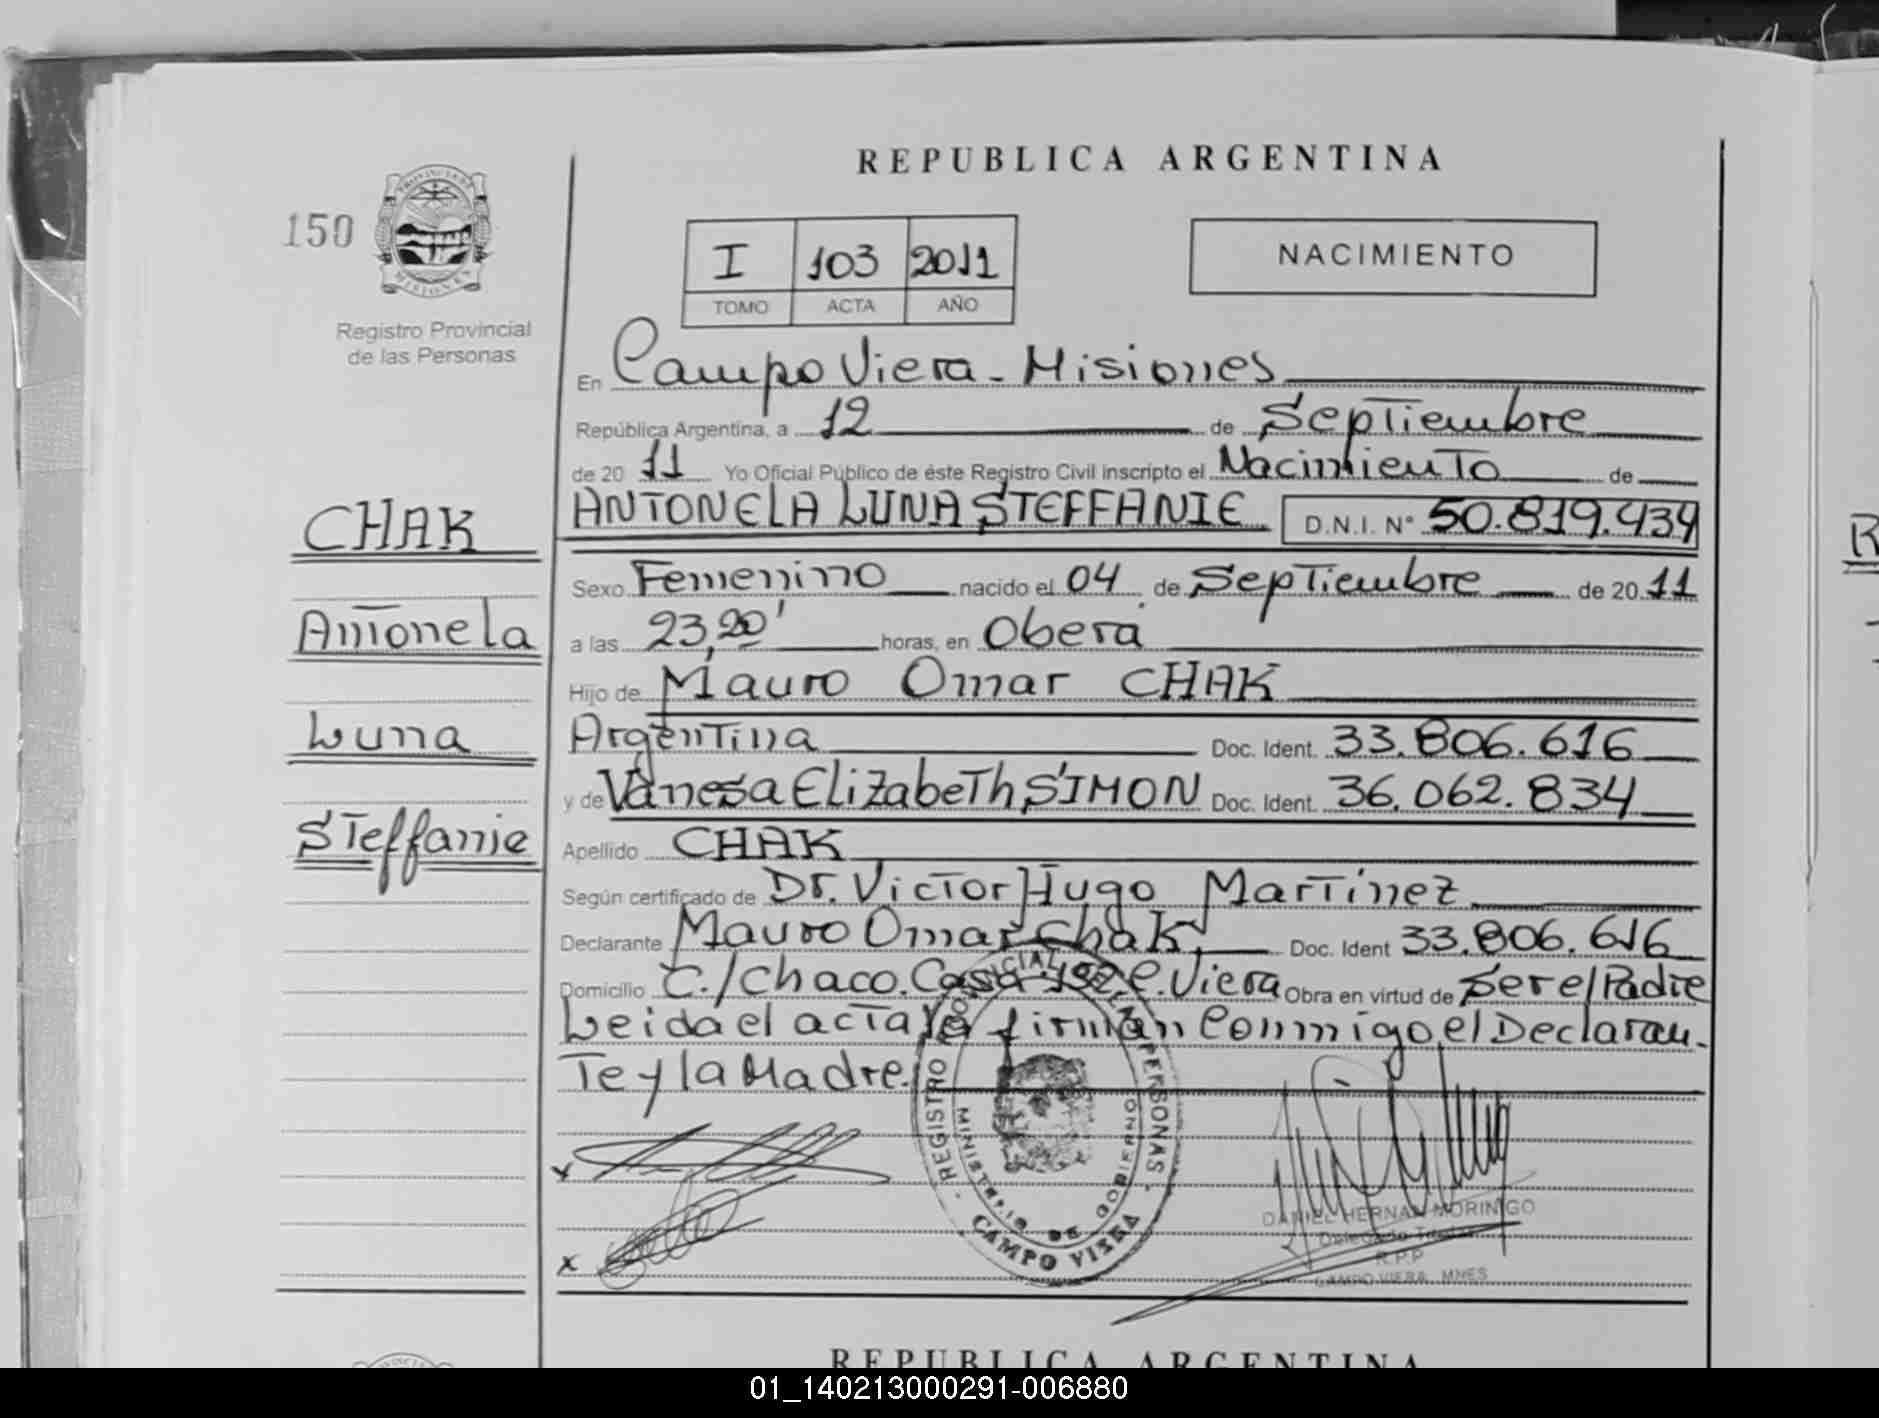 REPUBLICA ARGENTINA
150
PROVINCIA DE
MISIONES
Registro Provincial
de las Personas
I 103 2011
TOMO ACTA AÑO
NACIMIENTO
En Campo Viera - Misiones
República Argentina, a 12 de Septiembre
de 20 11 Yo Oficial Público de éste Registro Civil inscripto el Nacimiento de
ANTONELA LUNA STEFFANIE D.N.I. N° 50.819.434
CHAK
Antonela
Luna
Steffanie
Sexo Femenino nacido el 04 de Septiembre de 20 11
a las 23,20' horas, en Oberá
Hijo de Mauro Omar CHAK
Argentina Doc. Ident. 33.806.616
y de Vanesa Elizabeth SIMON Doc. Ident. 36.062.834
Apellido CHAK
Según certificado de Dr. Victor Hugo Martínez
Declarante Mauro Omar Chak, Doc. Ident 33.806.616
Domicilio C./Chaco. Casa 192 C. Viera Obra en virtud de Ser el Padre
Leida el acta la firman Conmigo el Declaran-
Te y la Madre.
REGISTRO PROVINCIAL DE LAS PERSONAS
MINISTERIO DE GOBIERNO
CAMPO VIERA
x
x
DANIEL HERNAN MORINIGO
Delegado Titular
R.P.P
CAMPO VIERA MNES
REPUBLICA ARGENTINA
01_140213000291-006880